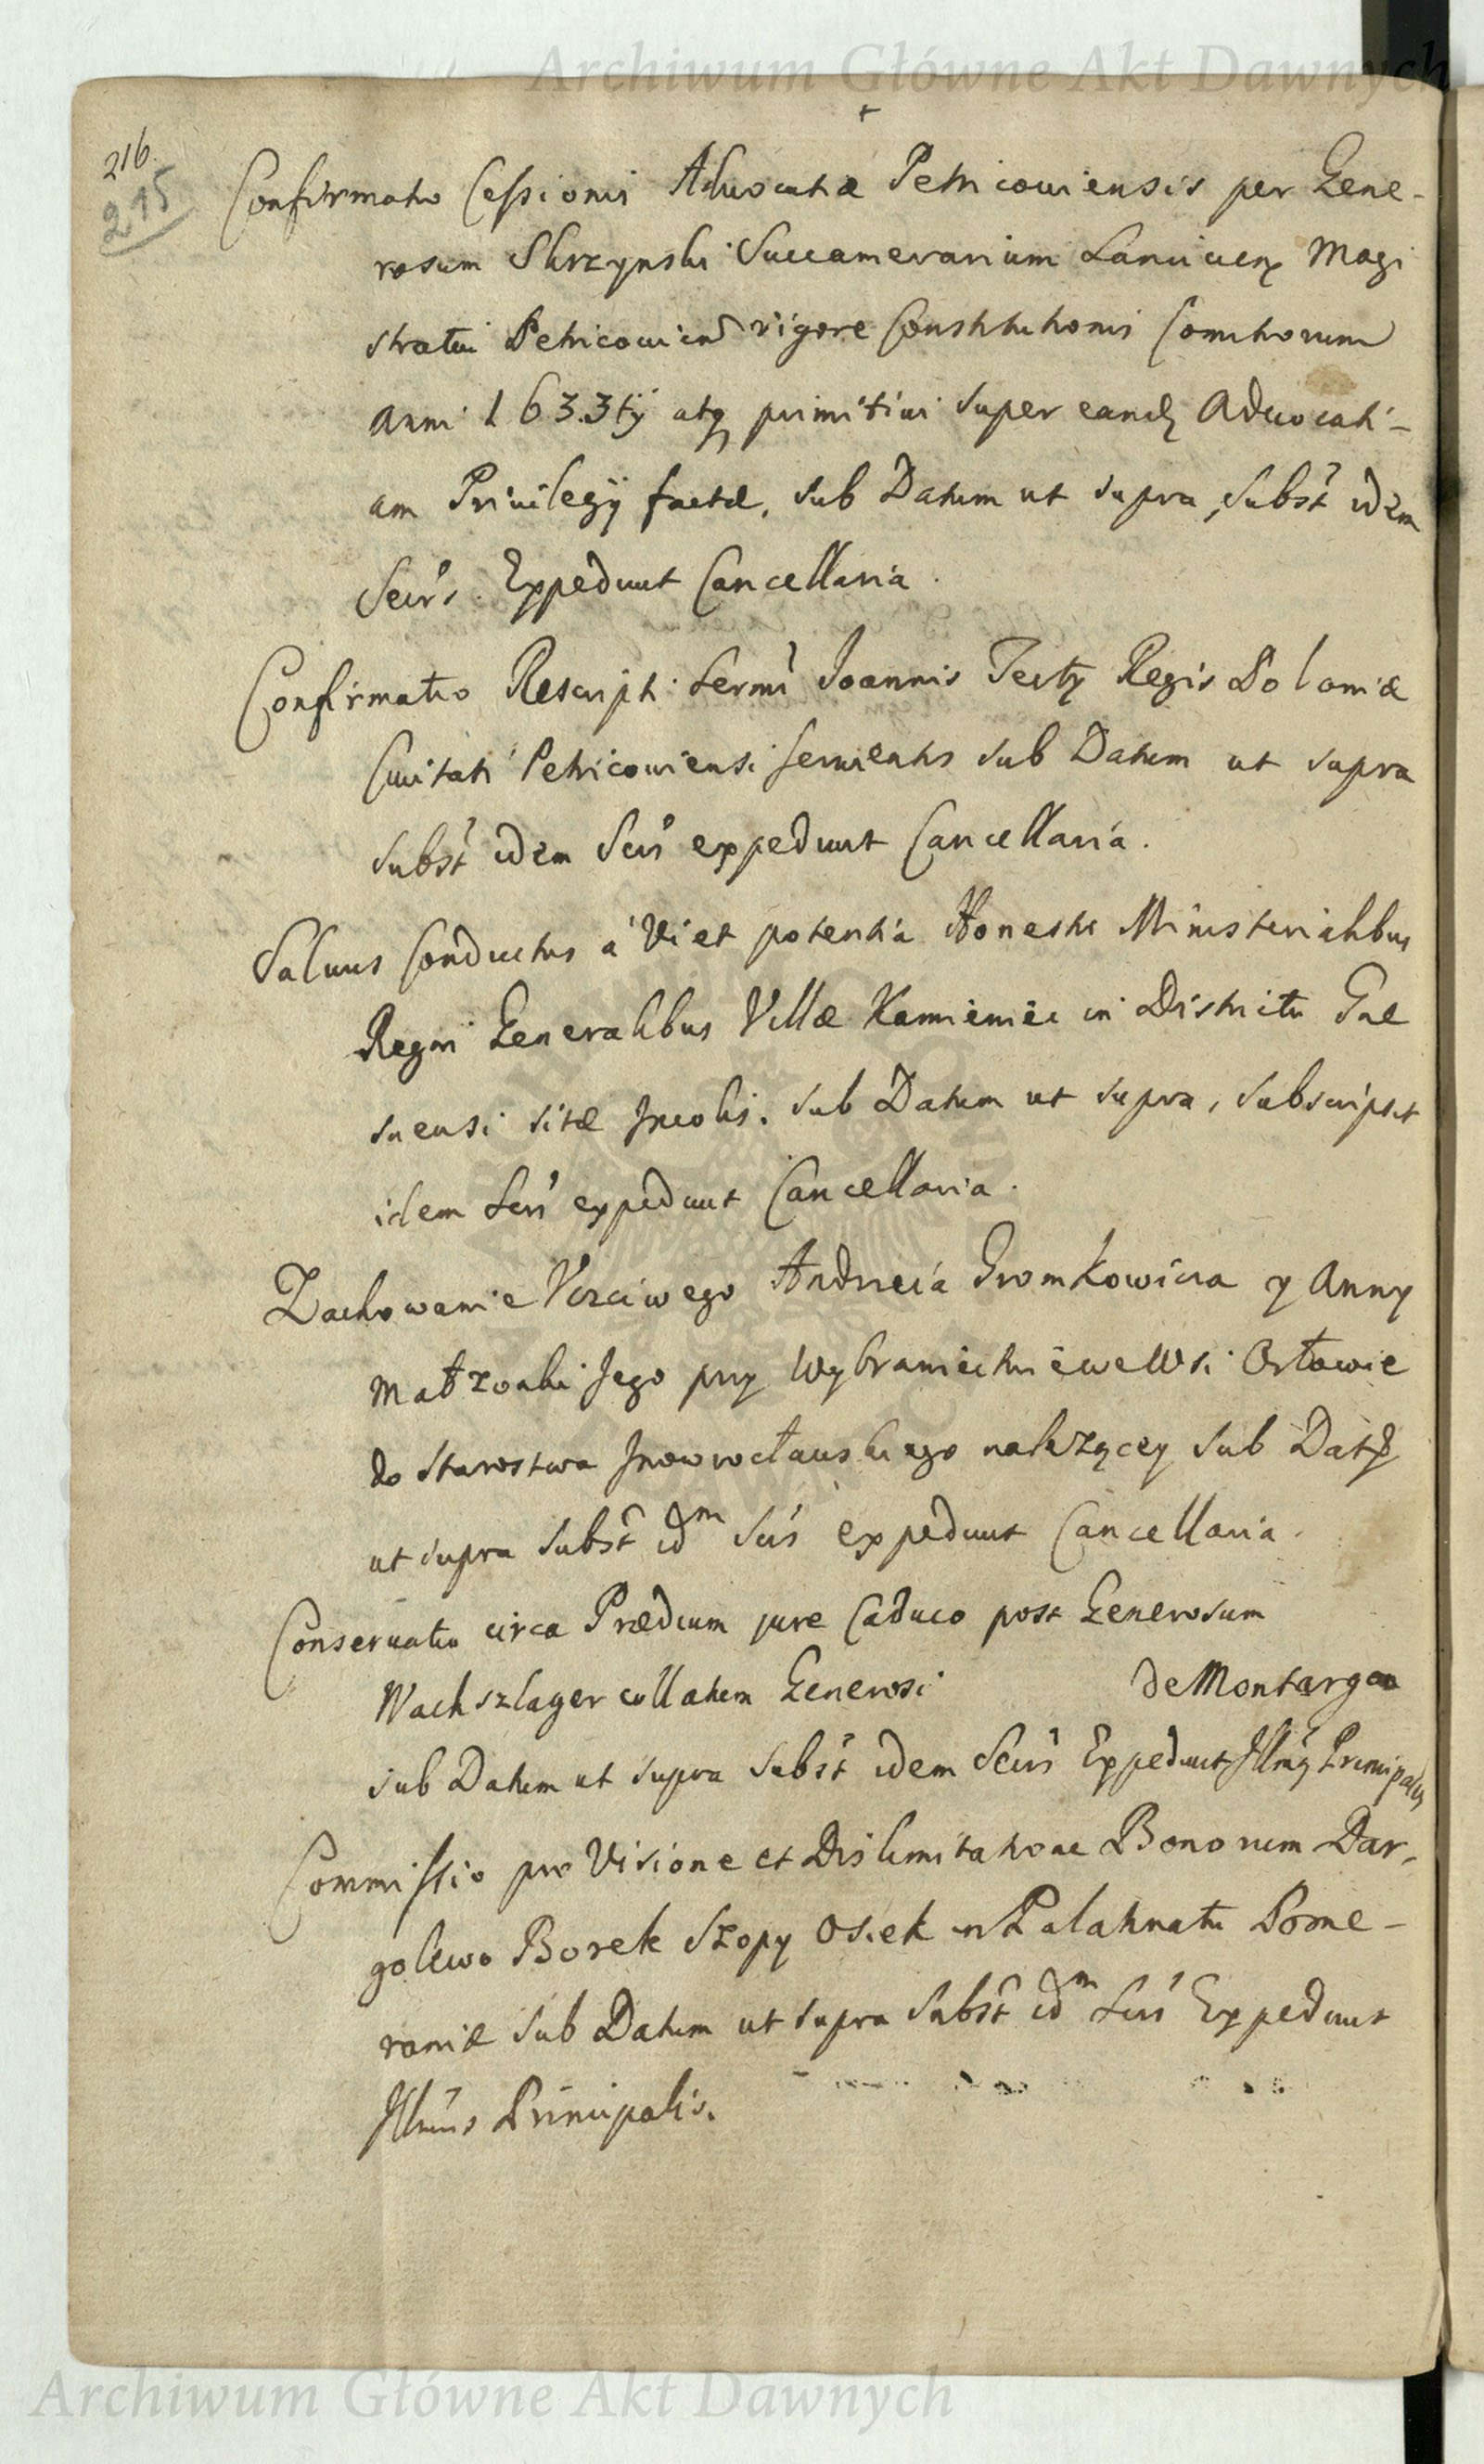 Archiwum Główne Akt Dawnych
216.
215
Confirmatio Cessionis Advocatiæ Petricoviensis per Gene-
rosum Skrzynski Succamerarium Lanciciens Magi
stratui Petricovien vigore Constitutionis Comitiorum
Anni 1633tÿ atq primitivi super eand Advocati-
am Privilegÿ factæ, sub Datum ut supra, subst idem
Secrs. Expediunt Cancellaria.
Confirmatio Rescripti Sermi Joannis Tertÿ Regis Poloniæ
Civitati Petricoviensi servientis sub Datum ut supra
subst idem Secrs expediunt Cancellaria.
Salvus Conductus a Vi et potentia Honestis Ministerialibus
Regni Generalibus Villæ Kamieniec in Districtu Gne
snensi sitæ Incolis. sub Datum ut supra, subscripsit
idem Secrs expediunt Cancellaria.
Zachowanie Uczciwego Andrzeia Gromkowicza y Anny
Małzonki Jego przy Wybraniectwie we Wsi Orłowie
do Starostwa Inowrocławskiego nalezącey sub Dat
ut supra subst idm Secrs expediunt Cancellaria.
Conservatio circa Prædium jure Caduco post Generosum
Wachszlager collatum Generosi de Montargon
sub Datum ut supra subst idem Secrs Expediunt Illmg Principalis
Commissio pro Visione et Dislimitatione Bonorum Dar-
golewo Borek Szopy Osiek in Palatinatu Pome-
raniæ sub Datum ut supra subst idm Secrs Expediunt
Illmus Principalis.
Archiwum Główne Akt Dawnych